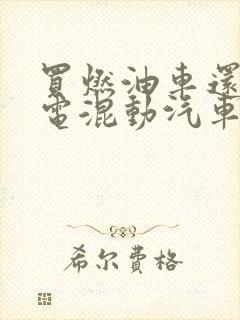 買燃油車還
電混動汽車
希尔費格